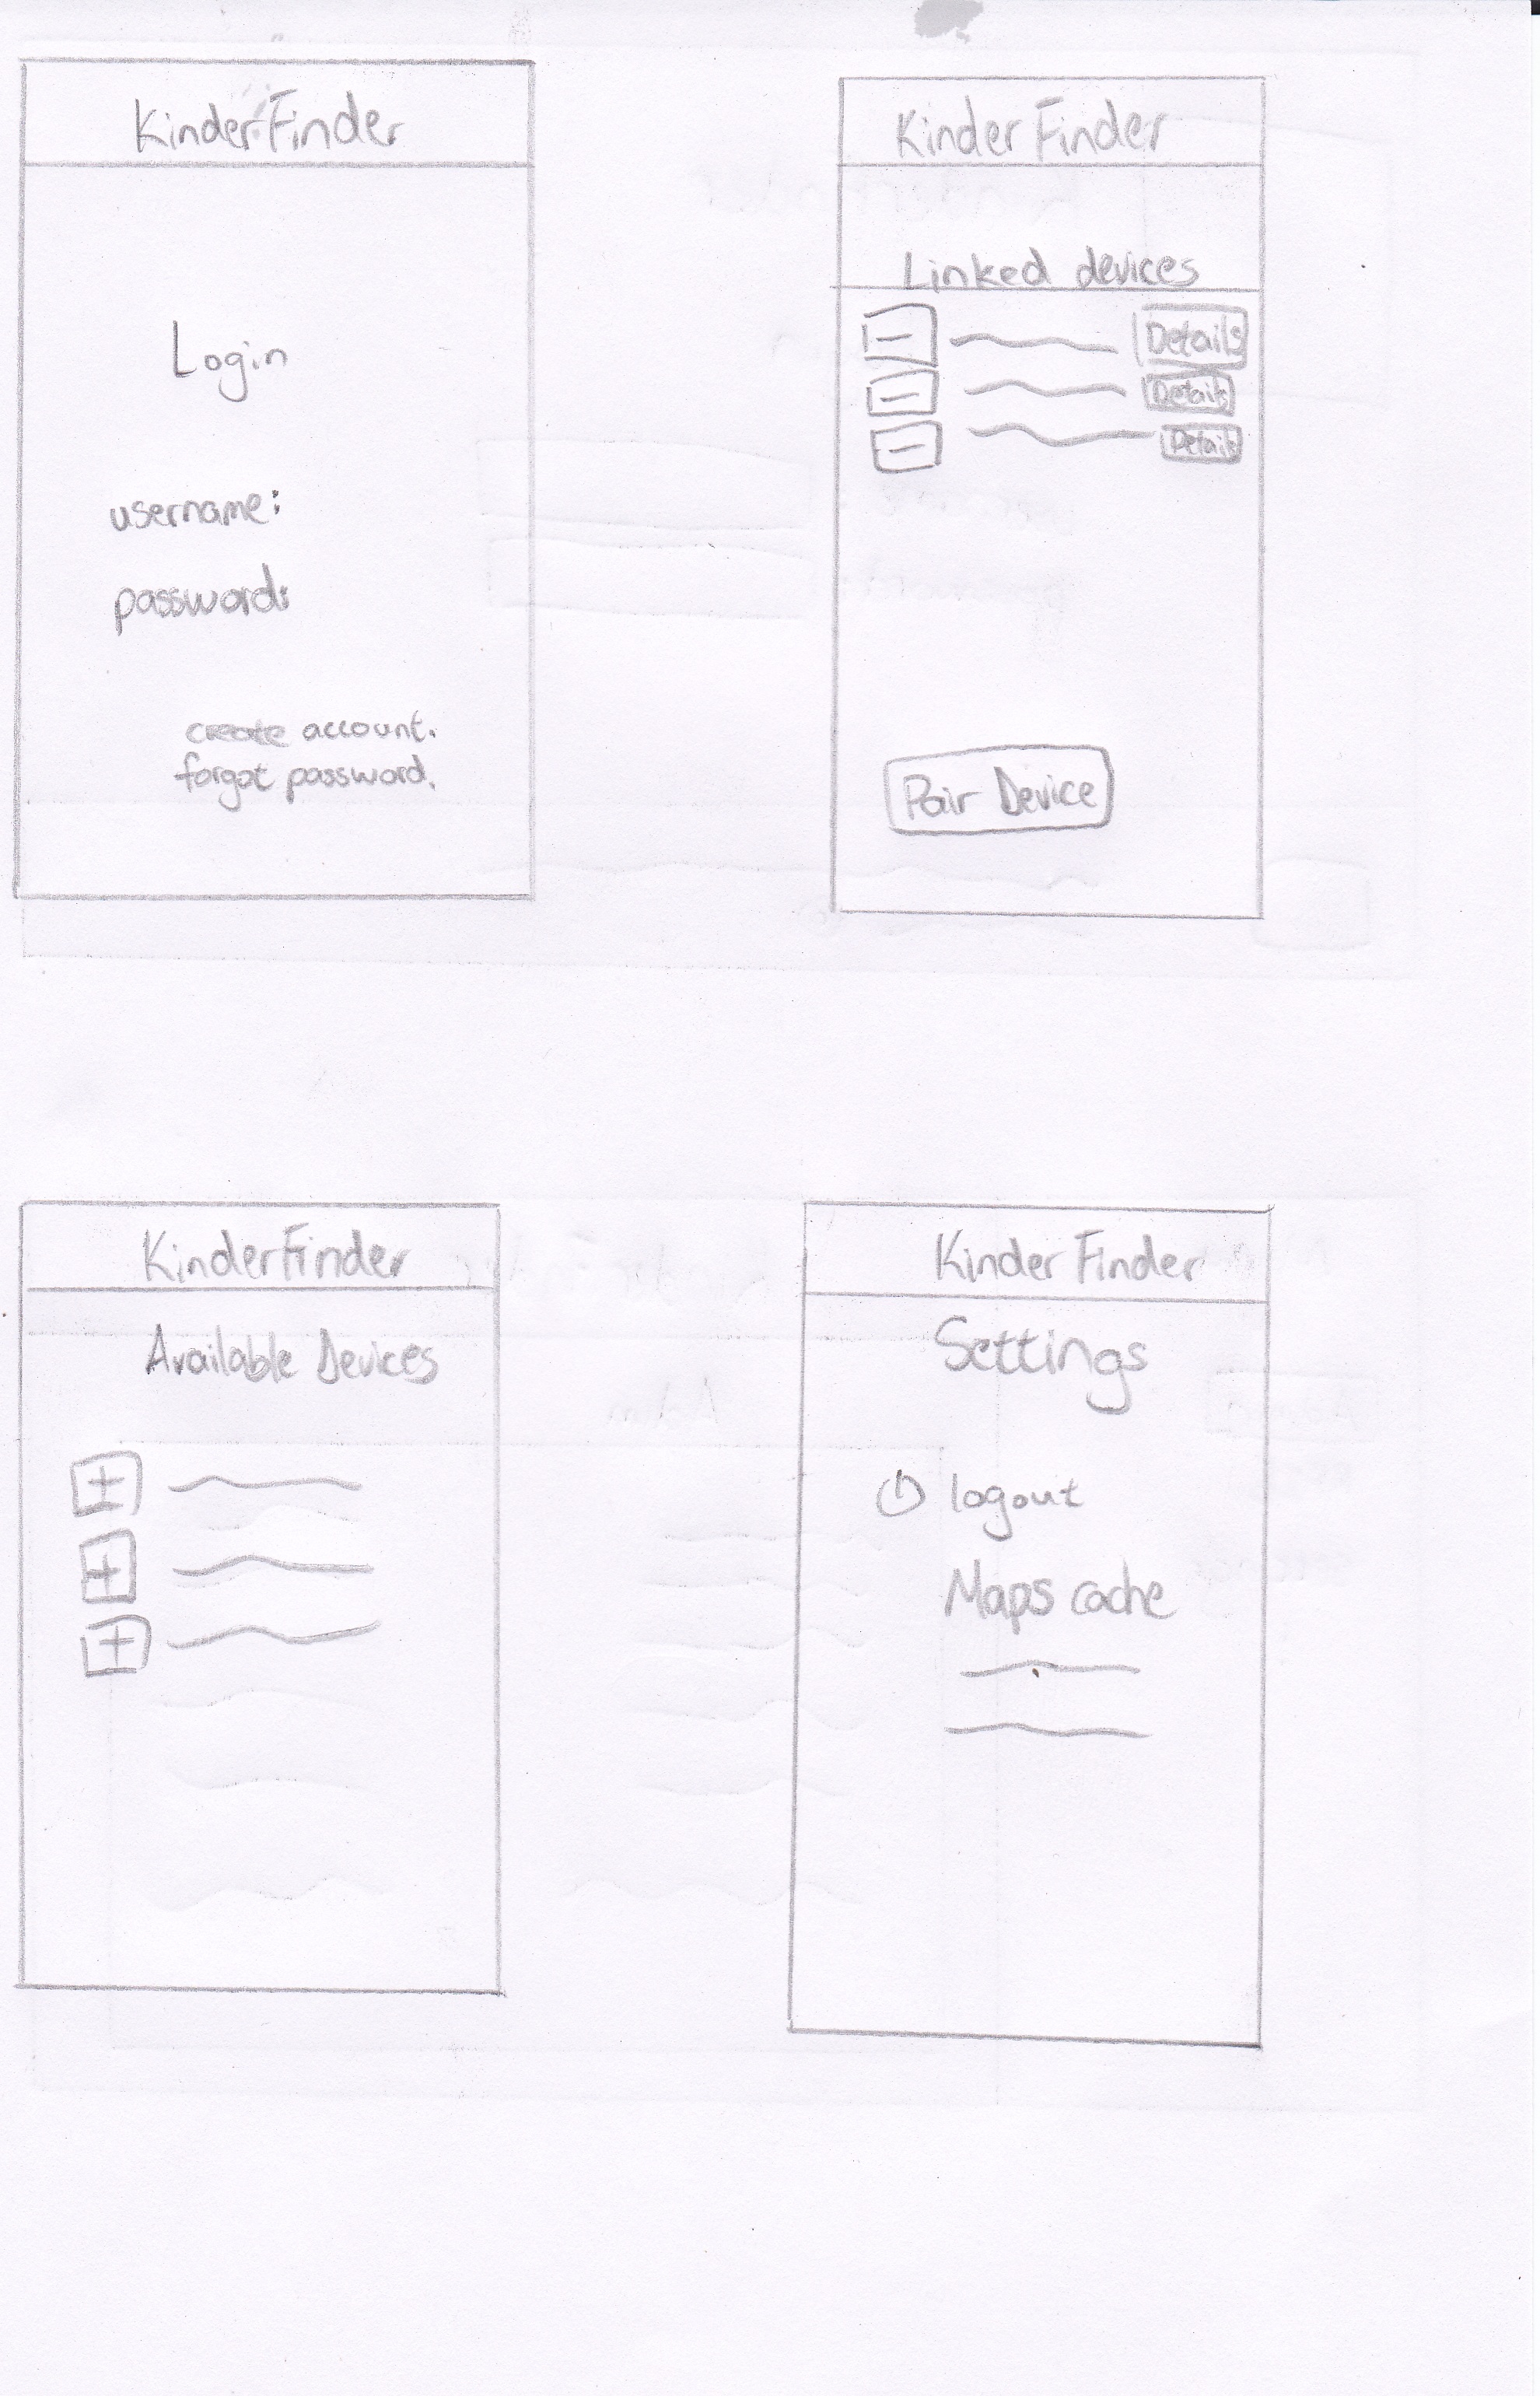 KinderFinder
Login
username:
password:
create account.
forgot password.
Kinder Finder
Linked devices
Details
Details
Details
Pair Device
KinderFinder
Available Devices
Kinder Finder
Settings
logout
Maps cache